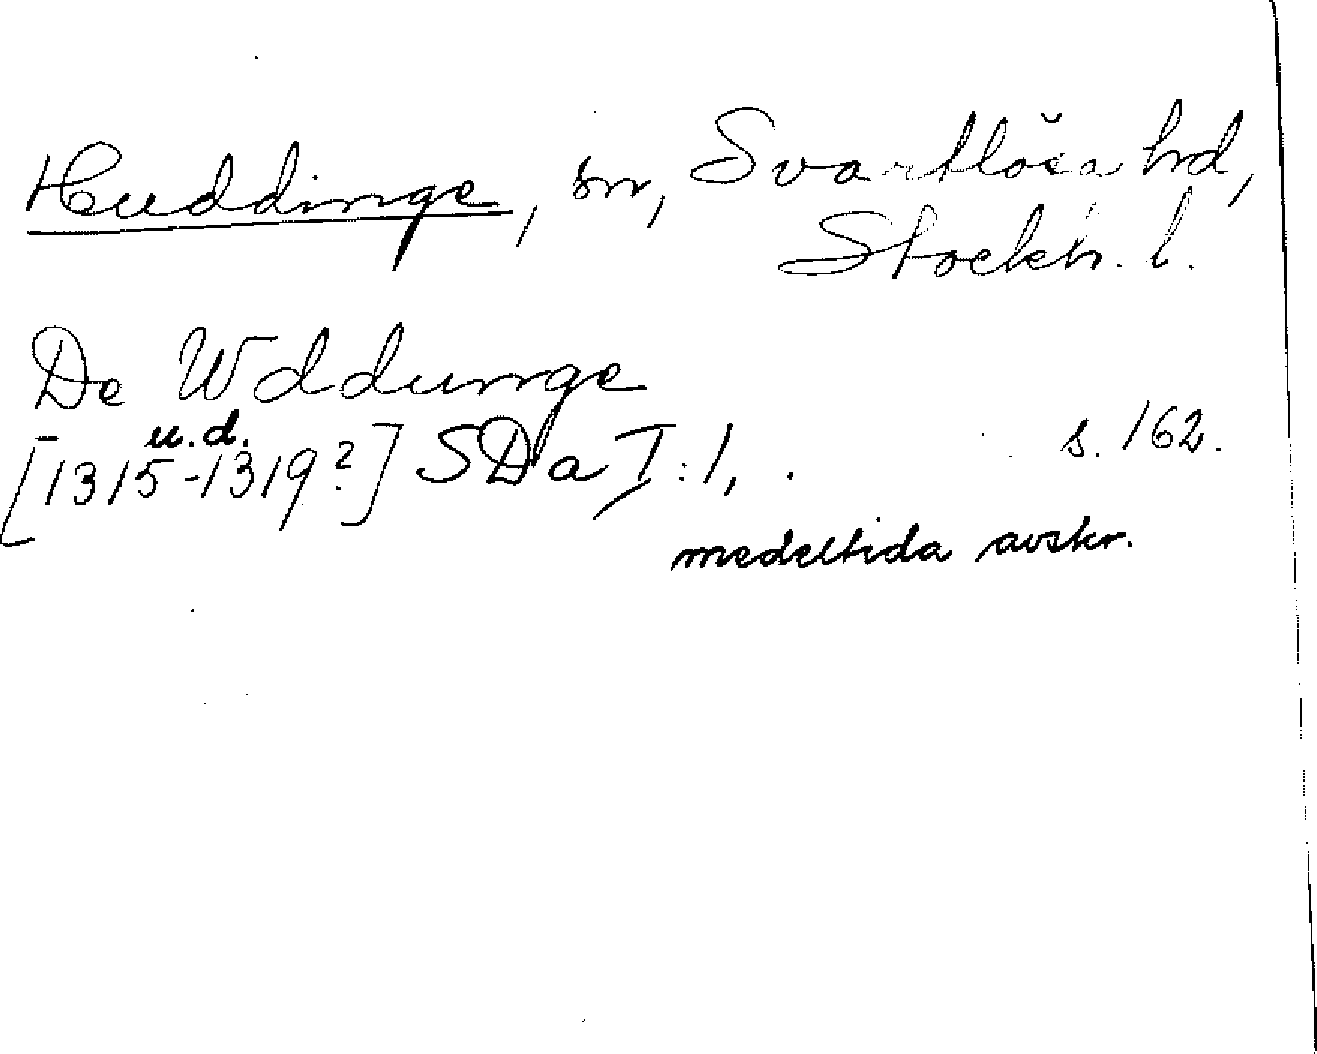 Huddinge, sn, Svartlösa hd,
Stockh. l.
De Wddunge
u.d.
[1315-1319?] SDa I:1, s. 162.
medeltida avskr.